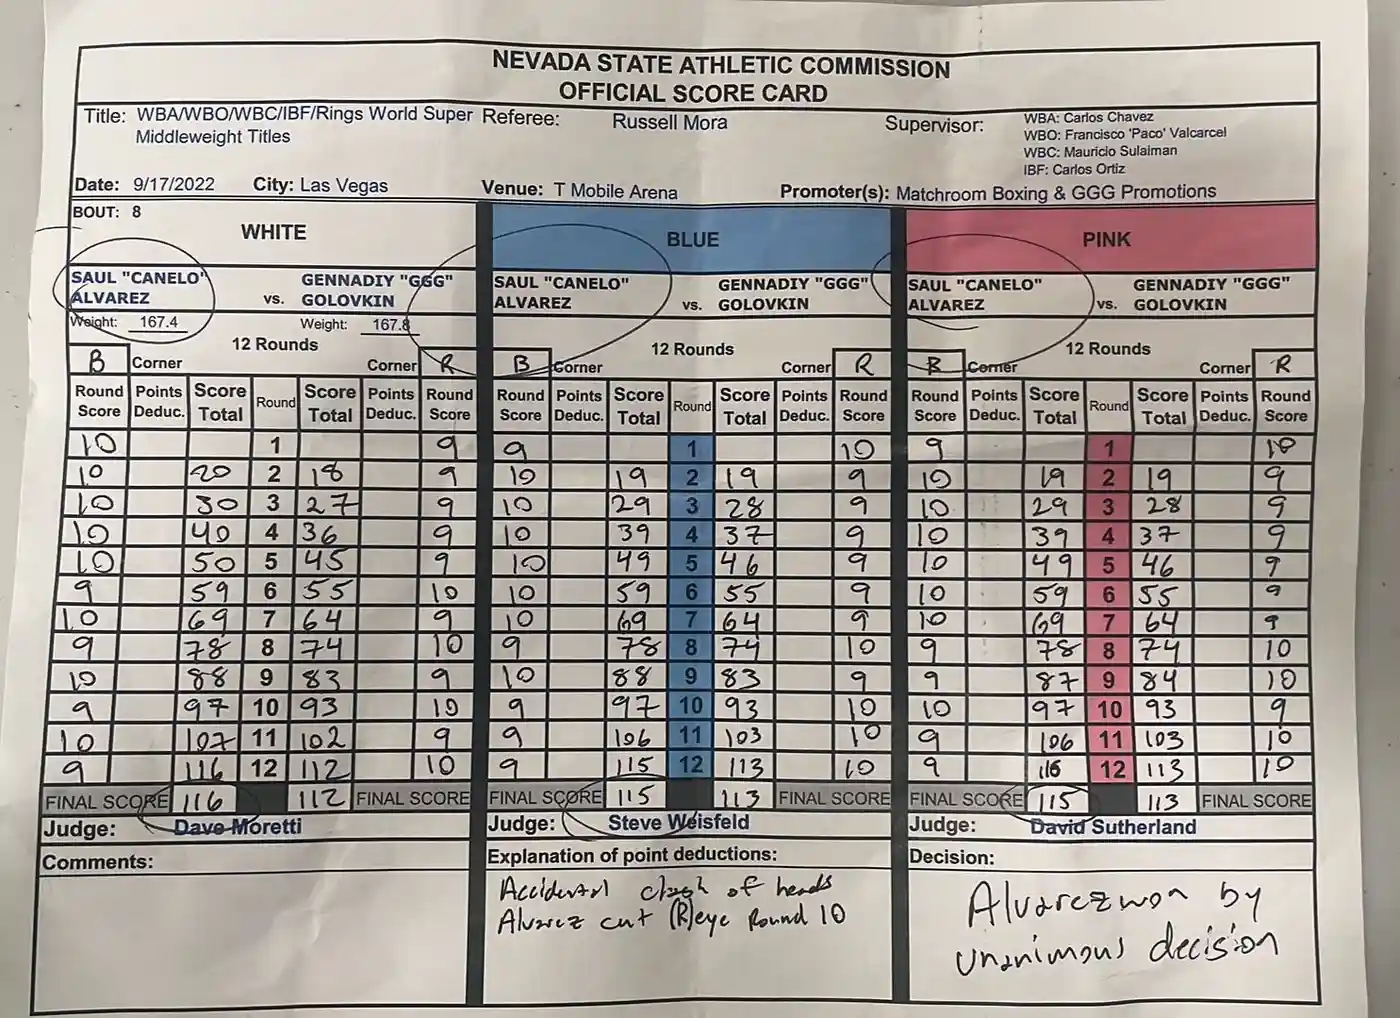 NEVADA STATE ATHLETIC COMMISSION
OFFICIAL SCORE CARD
Title: WBA/WBO/WBC/IBF/Rings World Super Middleweight Titles
Referee: Russell Mora
Supervisor: WBA: Carlos Chavez
WBO: Francisco 'Paco' Valcarcel
WBC: Mauricio Sulaiman
IBF: Carlos Ortiz
Date: 9/17/2022 City: Las Vegas Venue: T Mobile Arena Promoter(s): Matchroom Boxing & GGG Promotions
BOUT: 8
WHITE BLUE PINK
SAUL "CANELO" ALVAREZ vs. GENNADIY "GGG" GOLOVKIN SAUL "CANELO" ALVAREZ vs. GENNADIY "GGG" GOLOVKIN SAUL "CANELO" ALVAREZ vs. GENNADIY "GGG" GOLOVKIN
Weight: 167.4 Weight: 167.8
12 Rounds 12 Rounds 12 Rounds
B Corner Corner R B Corner Corner R B Corner Corner R
Round Score Points Deduc. Score Total Round Score Total Points Deduc. Round Score Round Score Points Deduc. Score Total Round Score Total Points Deduc. Round Score Round Score Points Deduc. Score Total Round Score Total Points Deduc. Round Score
10 1 9 9 1 10 9 1 10
10 20 2 18 9 10 19 2 19 9 10 19 2 19 9
10 30 3 27 9 10 29 3 28 9 10 29 3 28 9
10 40 4 36 9 10 39 4 37 9 10 39 4 37 9
10 50 5 45 9 10 49 5 46 9 10 49 5 46 9
9 59 6 55 10 10 59 6 55 9 10 59 6 55 9
10 69 7 64 9 10 69 7 64 9 10 69 7 64 9
9 78 8 74 10 9 78 8 74 10 9 78 8 74 10
10 88 9 83 9 10 88 9 83 9 9 87 9 84 10
9 97 10 93 10 9 97 10 93 10 10 97 10 93 9
10 107 11 102 9 9 106 11 103 10 9 106 11 103 10
9 116 12 112 10 9 115 12 113 10 9 115 12 113 10
FINAL SCORE 116 112 FINAL SCORE FINAL SCORE 115 113 FINAL SCORE FINAL SCORE 115 113 FINAL SCORE
Judge: Dave Moretti Judge: Steve Weisfeld Judge: David Sutherland
Comments: Explanation of point deductions: Decision:
Accidental clash of heads
Alvarez cut (R) eye Round 10
Alvarez won by
unanimous decision